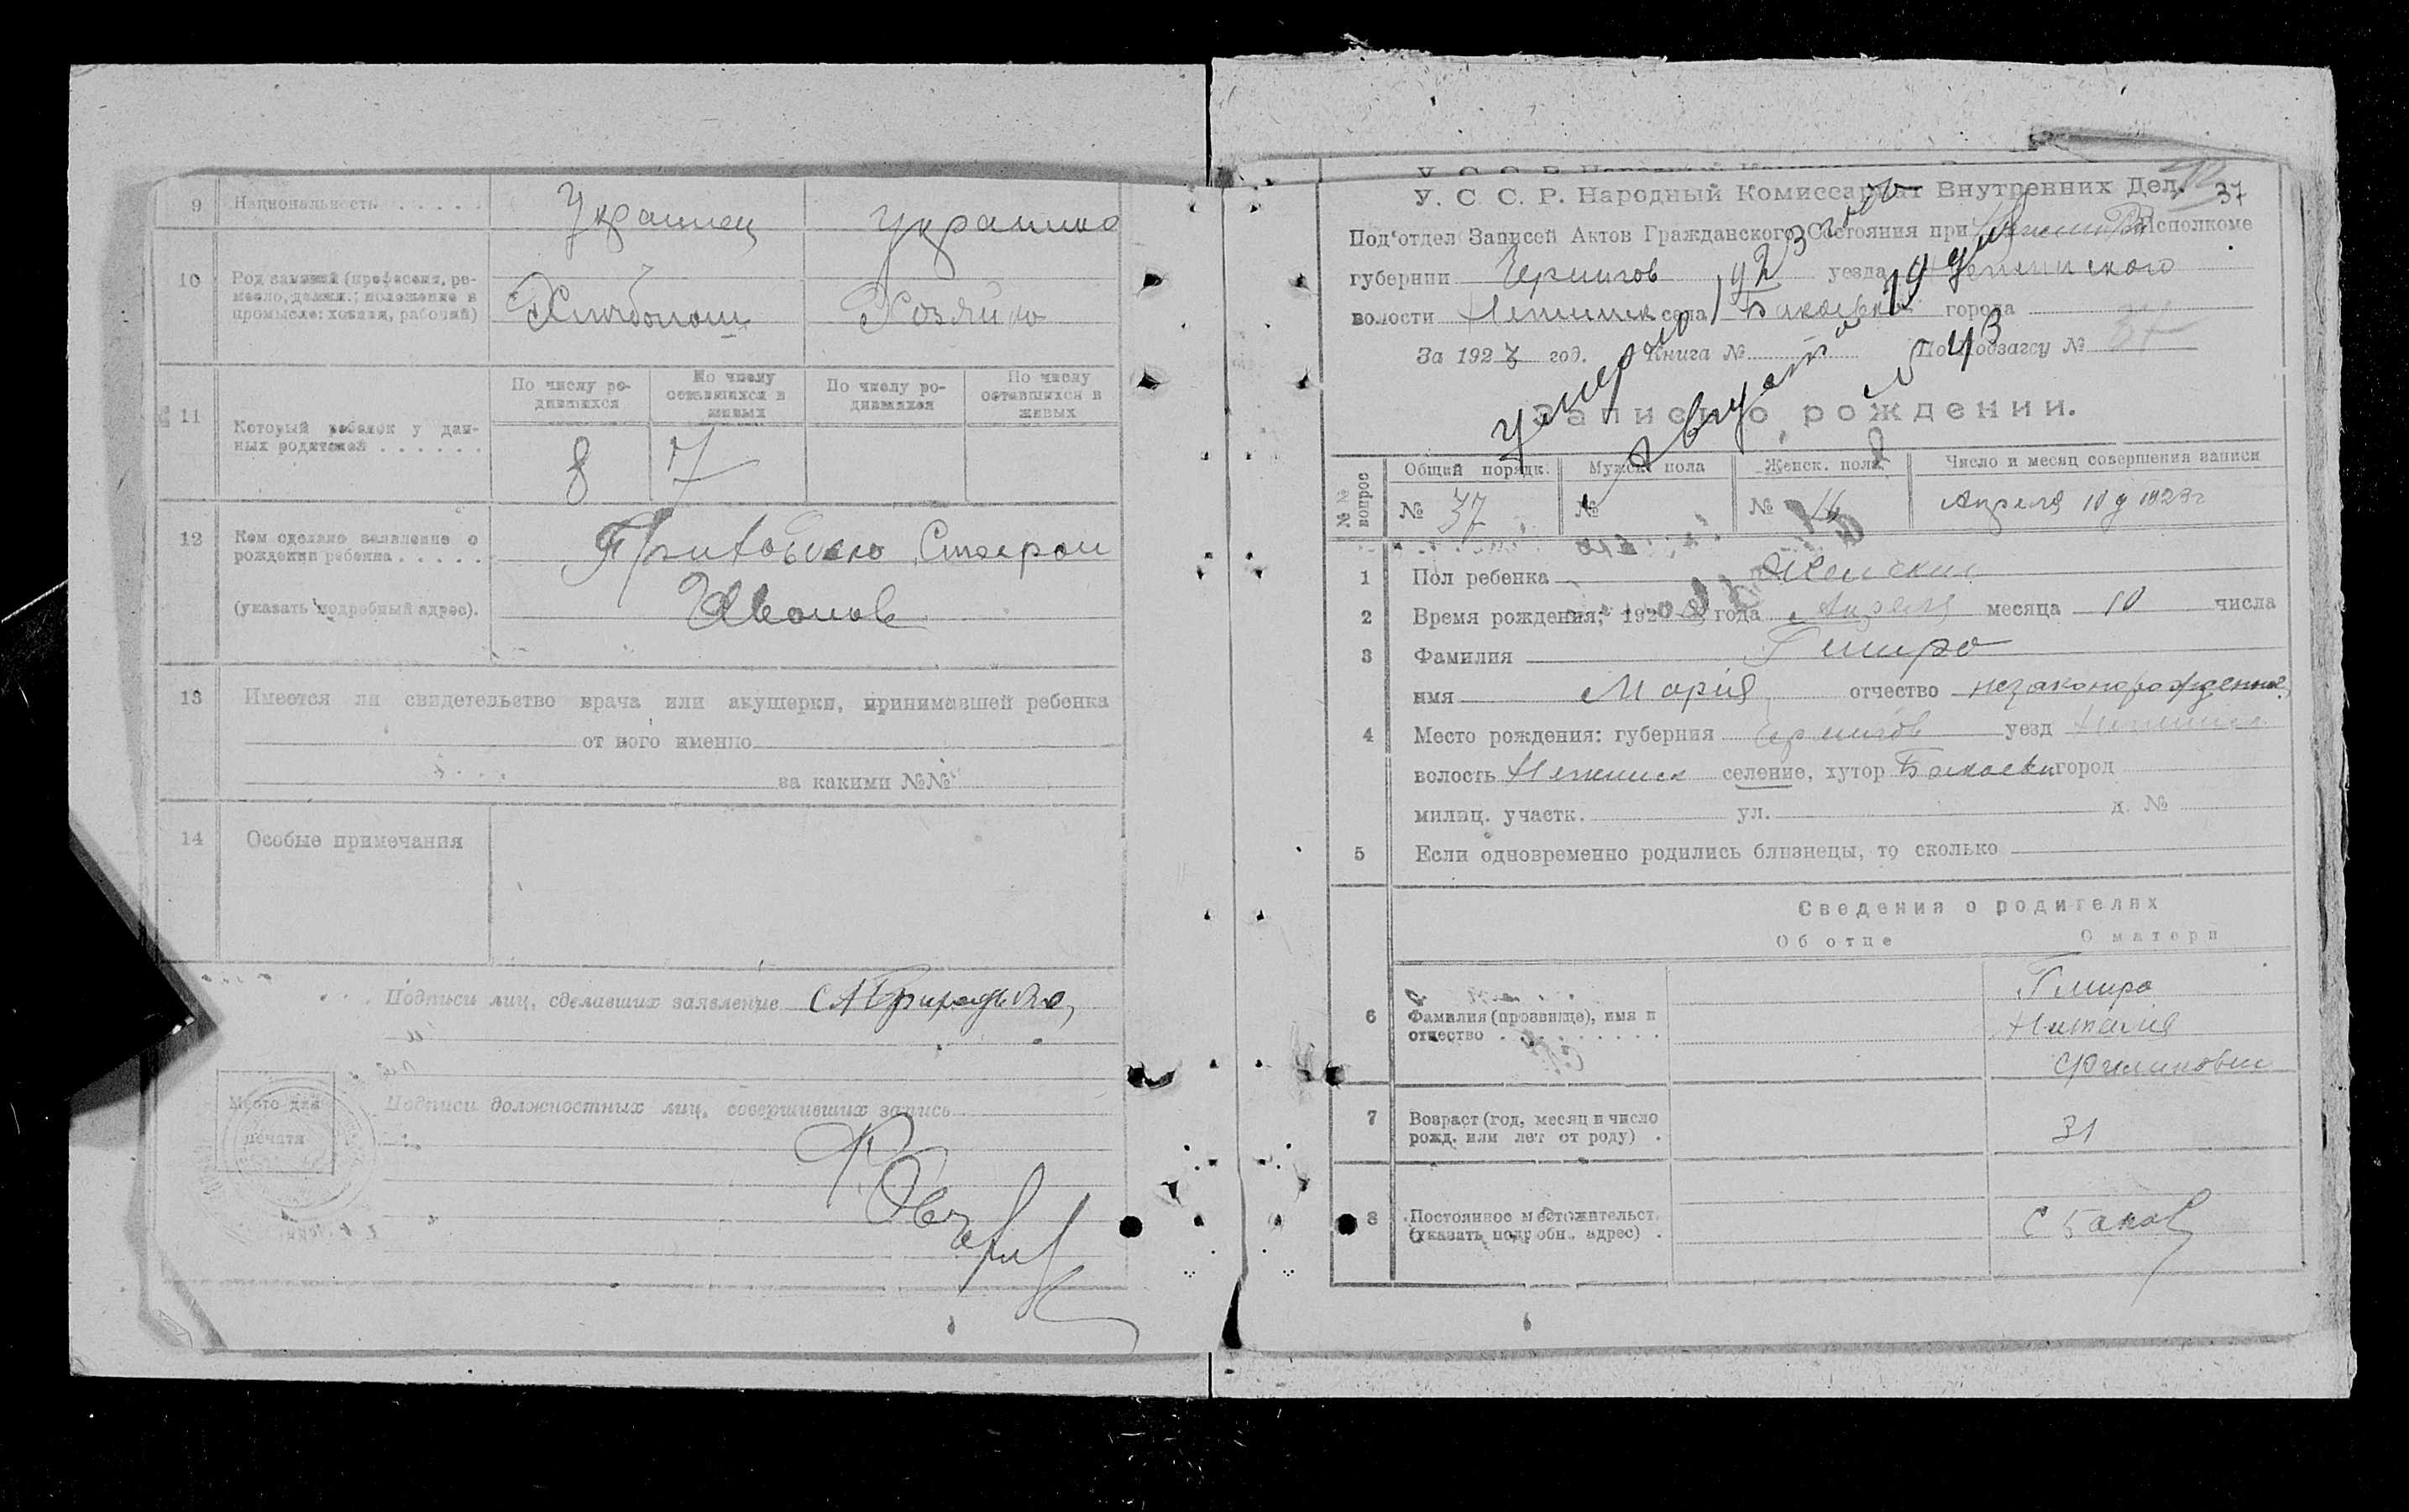 9 Национальность . . . . .
Украинец
Украинка
10 Род занятий (профессия, ре-
месло, должн.; положение в
промысле: хозяин, рабочий)
Хлебопаш
Хозяйка
11 Который ребенок у дан-
ных родителей . . . . . .
По числу ро-
дившихся
По числу
оставшихся в
живых
По числу ро-
дившихся
По числу
оставшихся в
живых
8 7
12 Кем сделано заявление о
рождении ребенка . . . . .
(указать подробный адрес).
13 Имеется ли свидетельство врача или акушерки, принимавшей ребенка
от кого именно
за какими №№
14 Особые примечания
Подписи лиц, сделавших заявление
Место для
печати
Подписи должностных лиц, совершивших запись
У. С. С. Р. Народный Комиссариат Внутренних Дел. 37
Под'отдел Записей Актов Гражданского Состояния при Исполкоме
губернии Чернигов уезда Нежинского
волости Нежинск села города
За 1923 год. Книга № По Подзагсу № 37
умерла августа 19 дня 1923 года
№ 43
Запись о рождении.
№№ вопрос
Общий порядк. Мужск. пола Женск. пола Число и месяц совершения записи
№ 37 № № 16 Апреля 10 д 1923 г
1 Пол ребенка Женский
2 Время рождения; 1923 года Апреля месяца 10 числа
3 Фамилия Гмиря
имя Марія отчество незаконорожденная
4 Место рождения: губерния Чернигов уезд Нежинск
волость Нежинск селение, хутор город
милиц. участк. ул. д. №
5 Если одновременно родились близнецы, то сколько
Сведения о родителях
Об отце О матери
6 Фамилия (прозвище), имя и
отчество . . . . . . . . .
Гмиря
Наталия
Филиповна
7 Возраст (год, месяц и число
рожд. или лет от роду) .
31
8 Постоянное местожительст.
(указать подробн. адрес) .